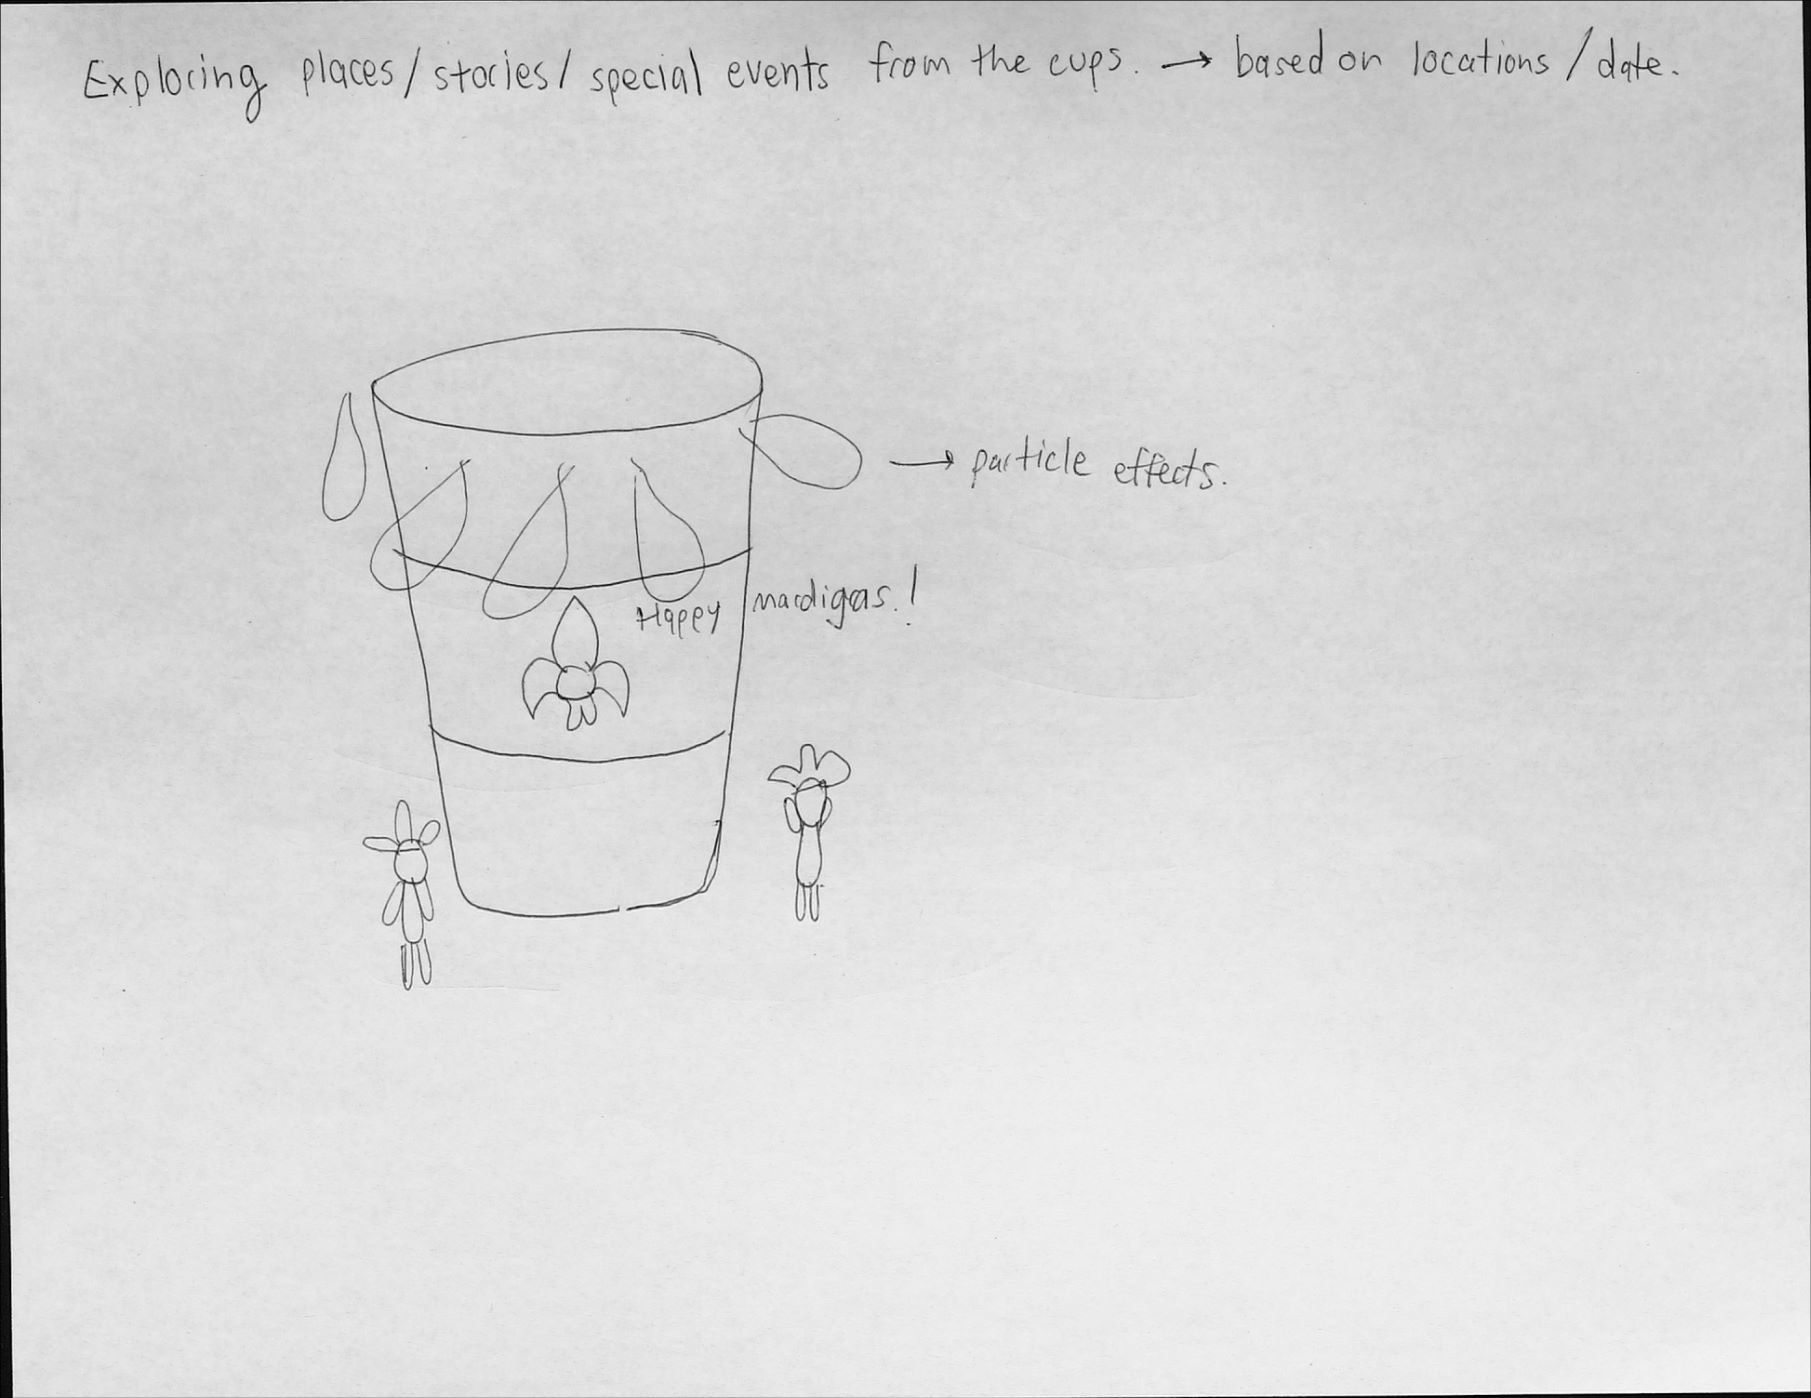 Exploring places/stories/special events from the cups. → based on locations/date.
→ particle effects.
Happy mardigas.!